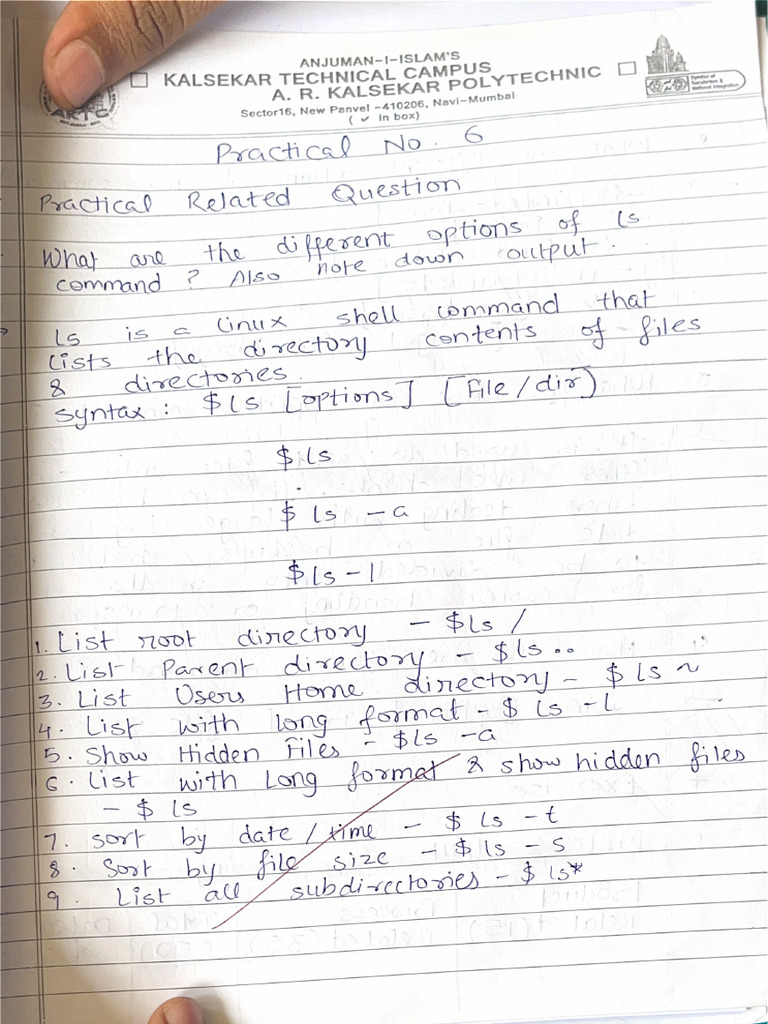 ANJUMAN-I-ISLAM'S
KALSEKAR TECHNICAL CAMPUS
A. R. KALSEKAR POLYTECHNIC
Sector16, New Panvel -410206, Navi-Mumbai
( ✓ in box)
AKTC
Symbol of
Secularism &
National Integration
Practical No. 6
Practical Related Question
What are the different options of ls
command? Also note down output.
ls is a linux shell command that
lists the directory contents of files
& directories.
syntax : $ ls [options] [file/dir]
$ ls
$ ls -a
$ ls -l
1. List root directory - $ ls /
2. List Parent directory - $ ls ..
3. List Users Home directory - $ ls ~
4. List with long format - $ ls -l
5. Show Hidden Files - $ ls -a
6. List with Long format & show hidden files
- $ ls
7. sort by date / time - $ ls -t
8. Sort by file size - $ ls - s
9. List all subdirectories - $ ls*